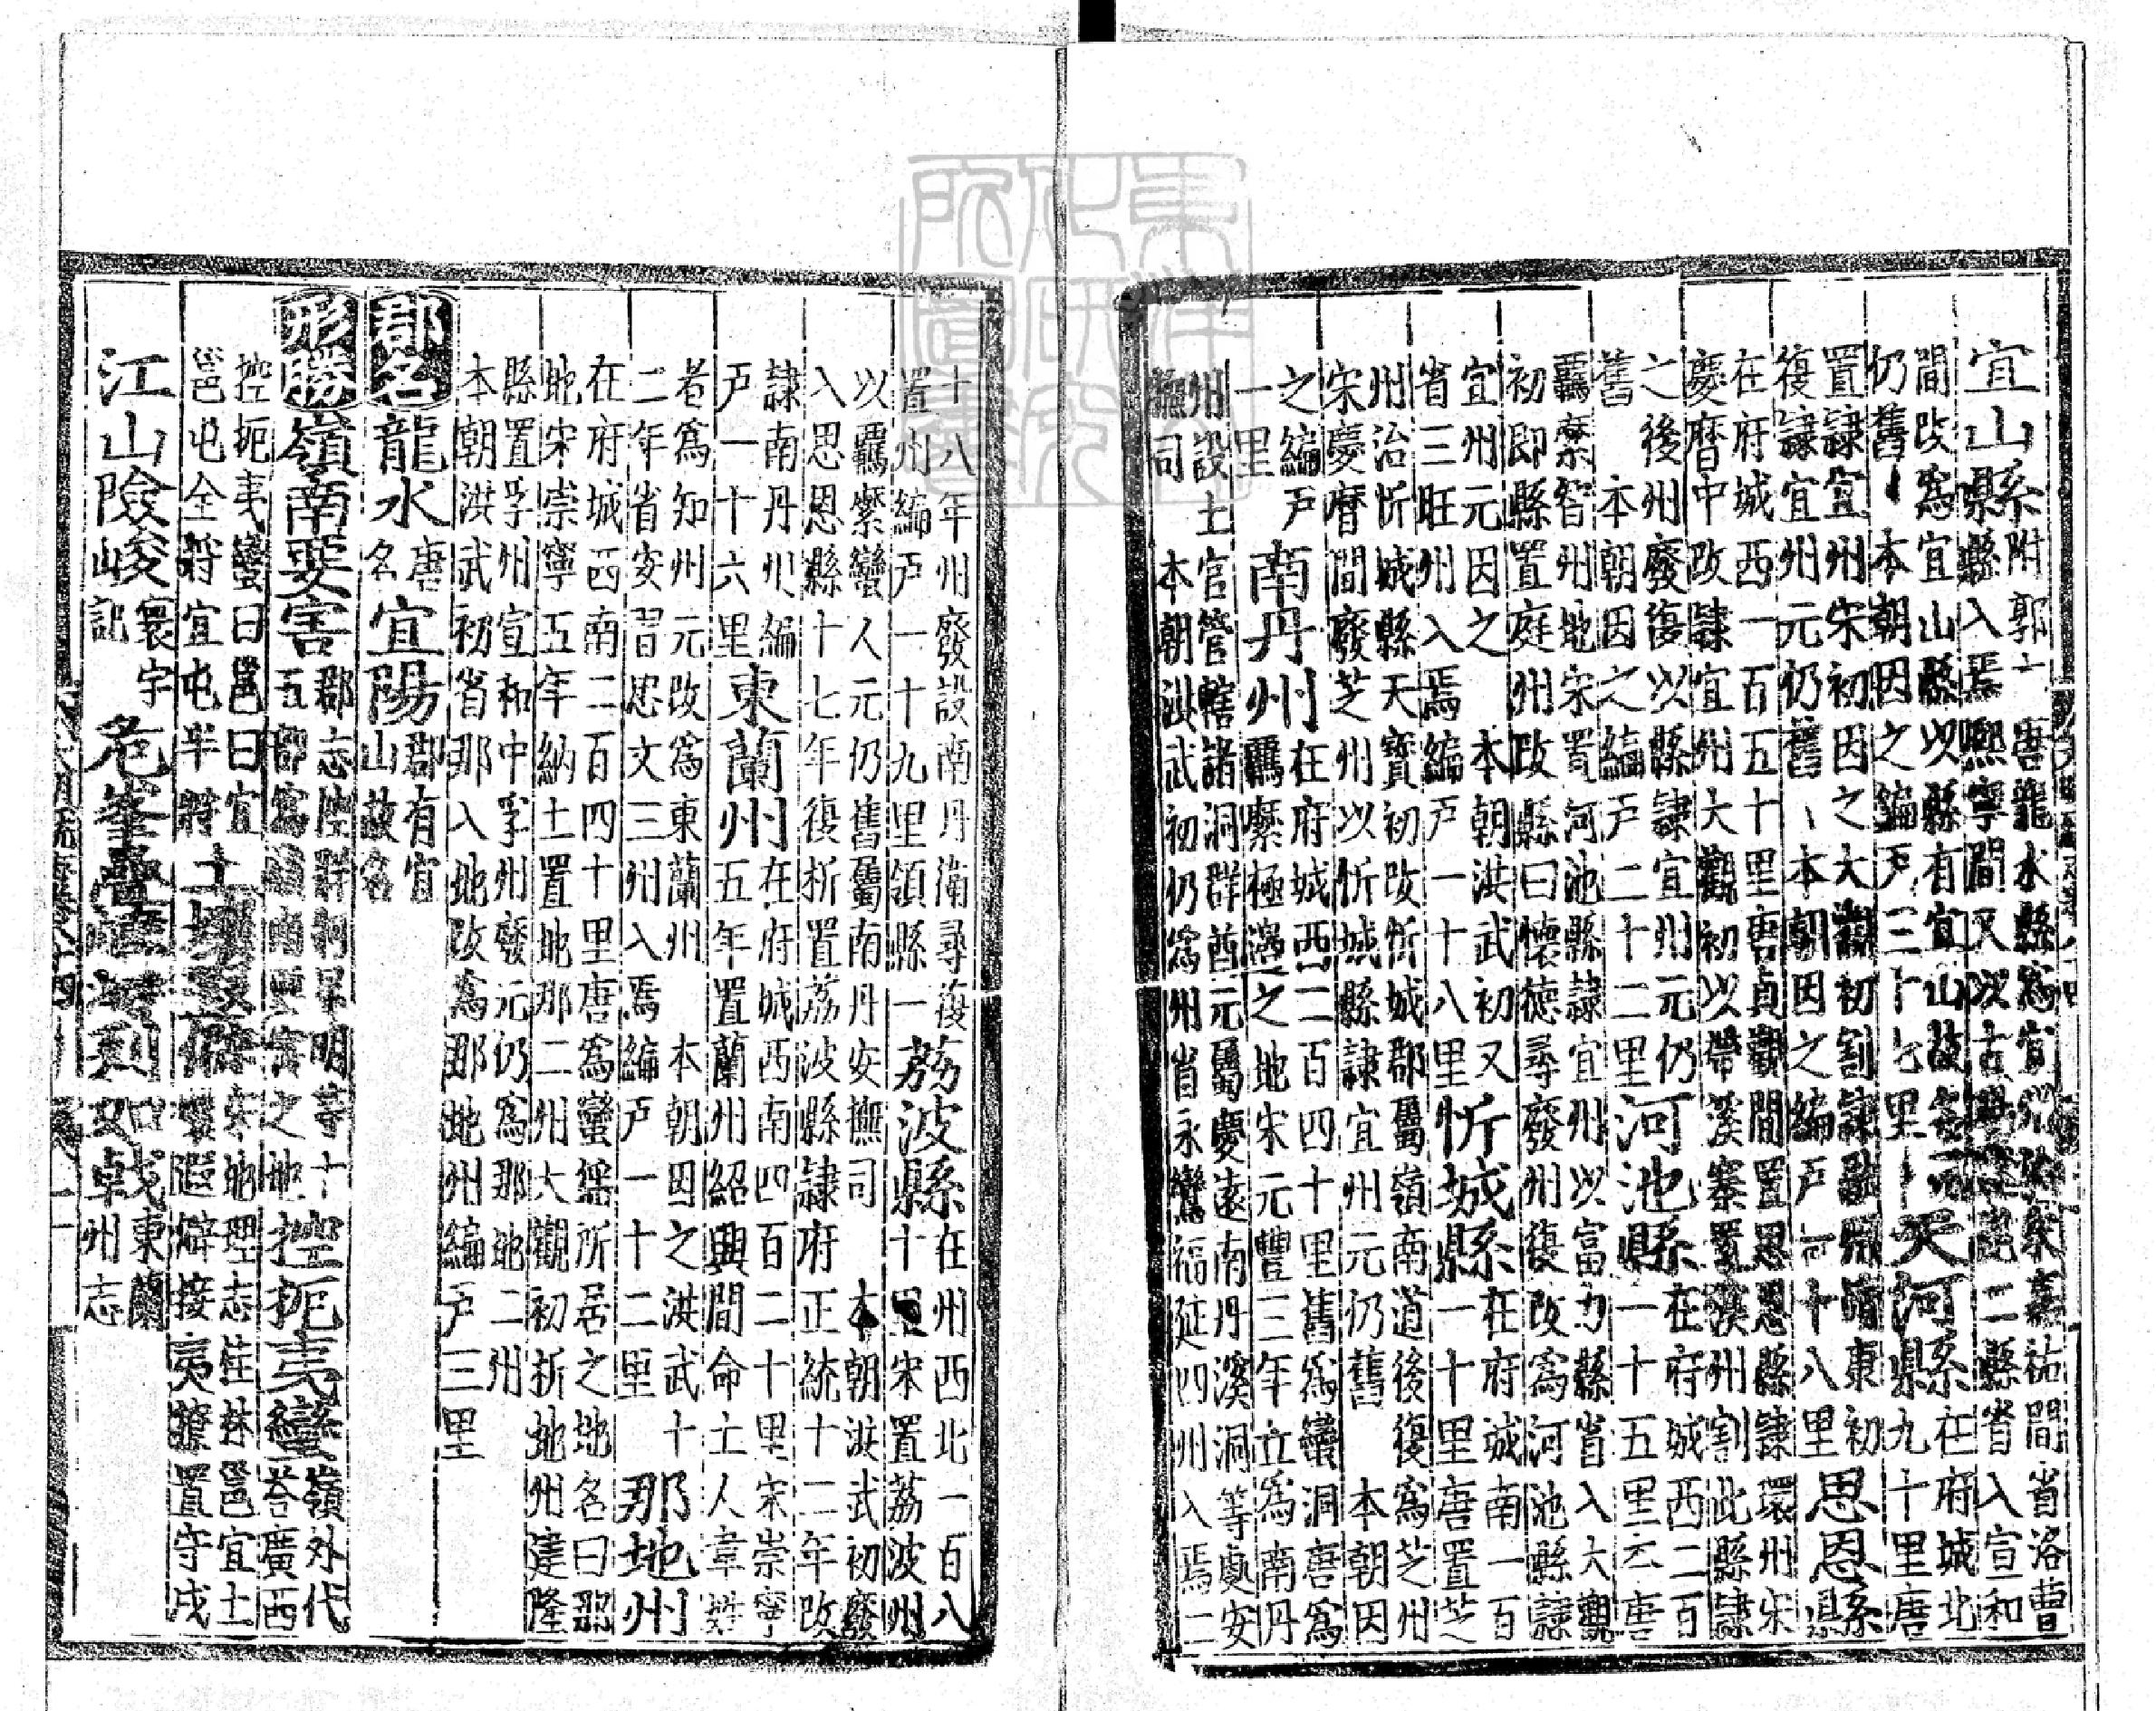 宜山縣附郭唐龍水縣爲宜州治宋嘉祐間省洛曹
縣入焉熙寧間又以古二縣省入宣和
間改爲宜山縣以縣有宜山故名元
仍舊本朝因之編戶三十七里天河縣在府城北
九十里唐
置隸宜州宋初因之大觀初割隸融州靖康初
復隸宜州元仍舊本朝因之編戶一十八里思恩縣
在府城西一百五十里唐貞觀間置思恩縣隸環州宋
慶曆中改隸宜州大觀初以帶溪寨置溪州割此縣隸
之後州廢復以縣隸宜州元仍
舊本朝因之編戶二十二里河池縣在府城西二百
一十五里云唐
羈縻智州地宋置河池縣隸宜州以富力縣省入大觀
初即縣置庭州改縣曰懷德尋廢州復改爲河池縣隸
宜州元因之本朝洪武初又
省三旺州入焉編戶一十八里忻城縣在府城南一百
一十里唐置芝
州治忻城縣天寶初改忻城郡屬嶺南道後復爲芝州
宋慶曆間廢芝州以忻城縣隸宜州元仍舊本朝因
之編戶
一里南丹州在府城西二百四十里舊爲蠻洞唐爲
羈縻極邊之地宋元豐三年立爲南丹
州設土官管轄諸洞群酋元屬慶遠南丹溪洞等處安
撫司本朝洪武初仍爲州省永鸞福延四州入焉二
十八年州廢設南丹衛尋復
置州編戶一十九里領縣一荔波縣在州西北一百八
十里宋置荔波州
以羈縻蠻人元仍舊屬南丹安撫司本朝洪武初廢
入思恩縣十七年復析置荔波縣隸府正統十二年改
隸南丹州編
戶一十六里東蘭州在府城西南四百二十里宋崇寧
五年置蘭州紹興間命土人韋姓
者爲知州元改爲東蘭州本朝因之洪武十
二年省安習思文三州入焉編戶一十二里那地州
在府城西南二百四十里唐爲蠻猺所居之地名曰那
地宋崇寧五年納土置地那二州大觀初析地州建隆
縣置孚州宣和中孚州廢元仍爲那地二州
本朝洪武初省那入地改爲那地州編戶三里
郡名龍水唐
名宜陽郡有宜
山故名
形勝嶺南要害郡志
五郡爲嶺南要害之地控扼夷蠻嶺外代
荅廣西
控扼夷蠻曰邕曰宜
邕屯全將宜屯半將宋地理志桂林邕宜土
壤遐僻接夷獠置守戍
江山險峻寰宇
記危峯疊東蘭
州志